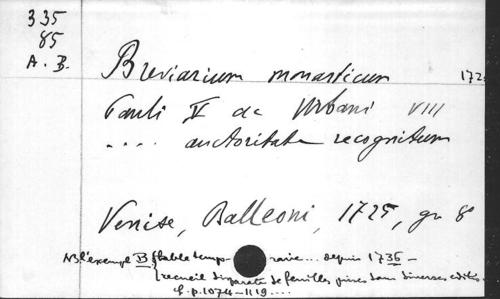 335
85
A. B.
Breviarium monasticum 172
Pauli V ac Urbani VIII
.... auctoritate recognitum
Venise, Balleoni, 1725, gr 8°
NB l'exempl B, ... depuis 1736 -
(recueil de feuilles dans diverses
cf. p. 1074-1119 ....